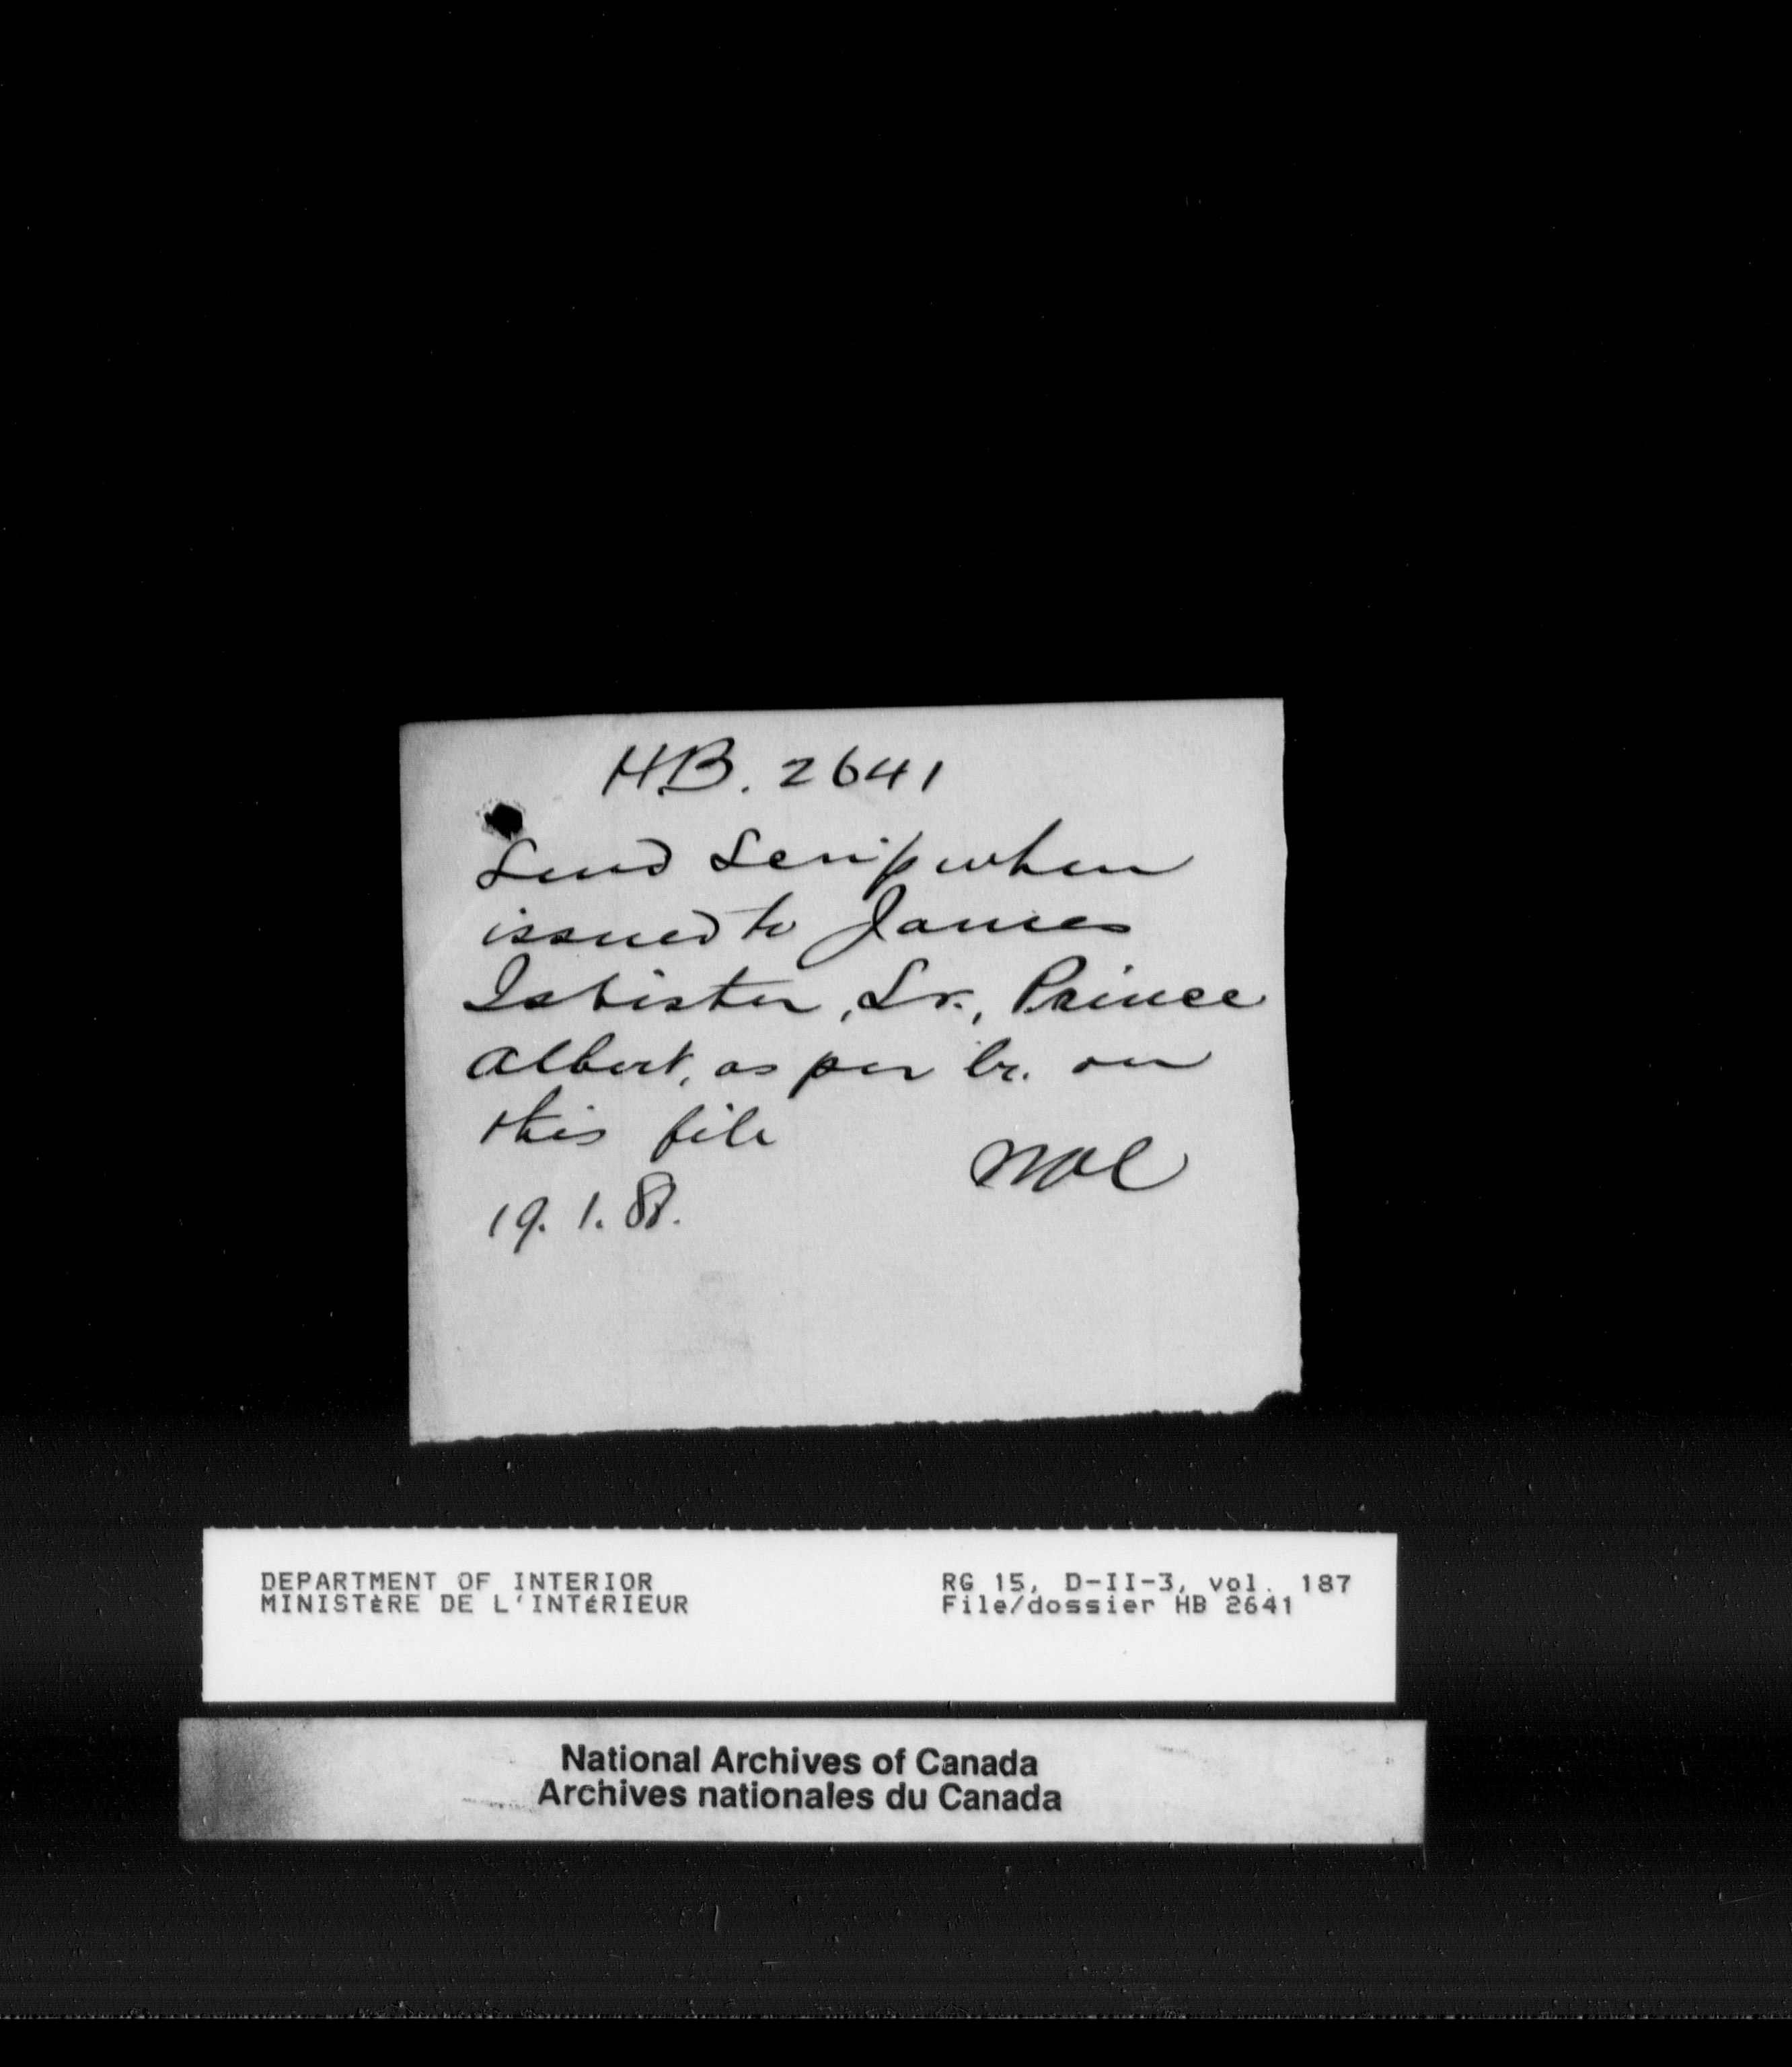 HB. 2641
Send Scrip when
issued to James
Isbister, Sr., Prince
Albert, as per lr. on
this file
19. 1. 88.
DEPARTMENT OF INTERIOR
MINISTÈRE DE L'INTÉRIEUR
RG 15, D-II-3, vol. 187
File/dossier HB 2641
National Archives of Canada
Archives nationales du Canada